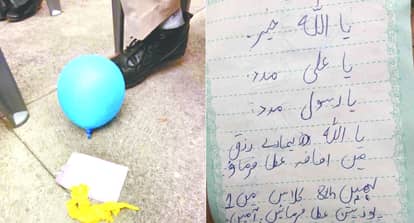 یا اللہ خیر.
یا علی مدد.
یا رسول مدد.
یا اللہ ہمارے رزق
میں اضافہ عطا فرما.
ہمیں 8th کلاس میں 1
پوزیشن عطا فرمائیں. آمین.